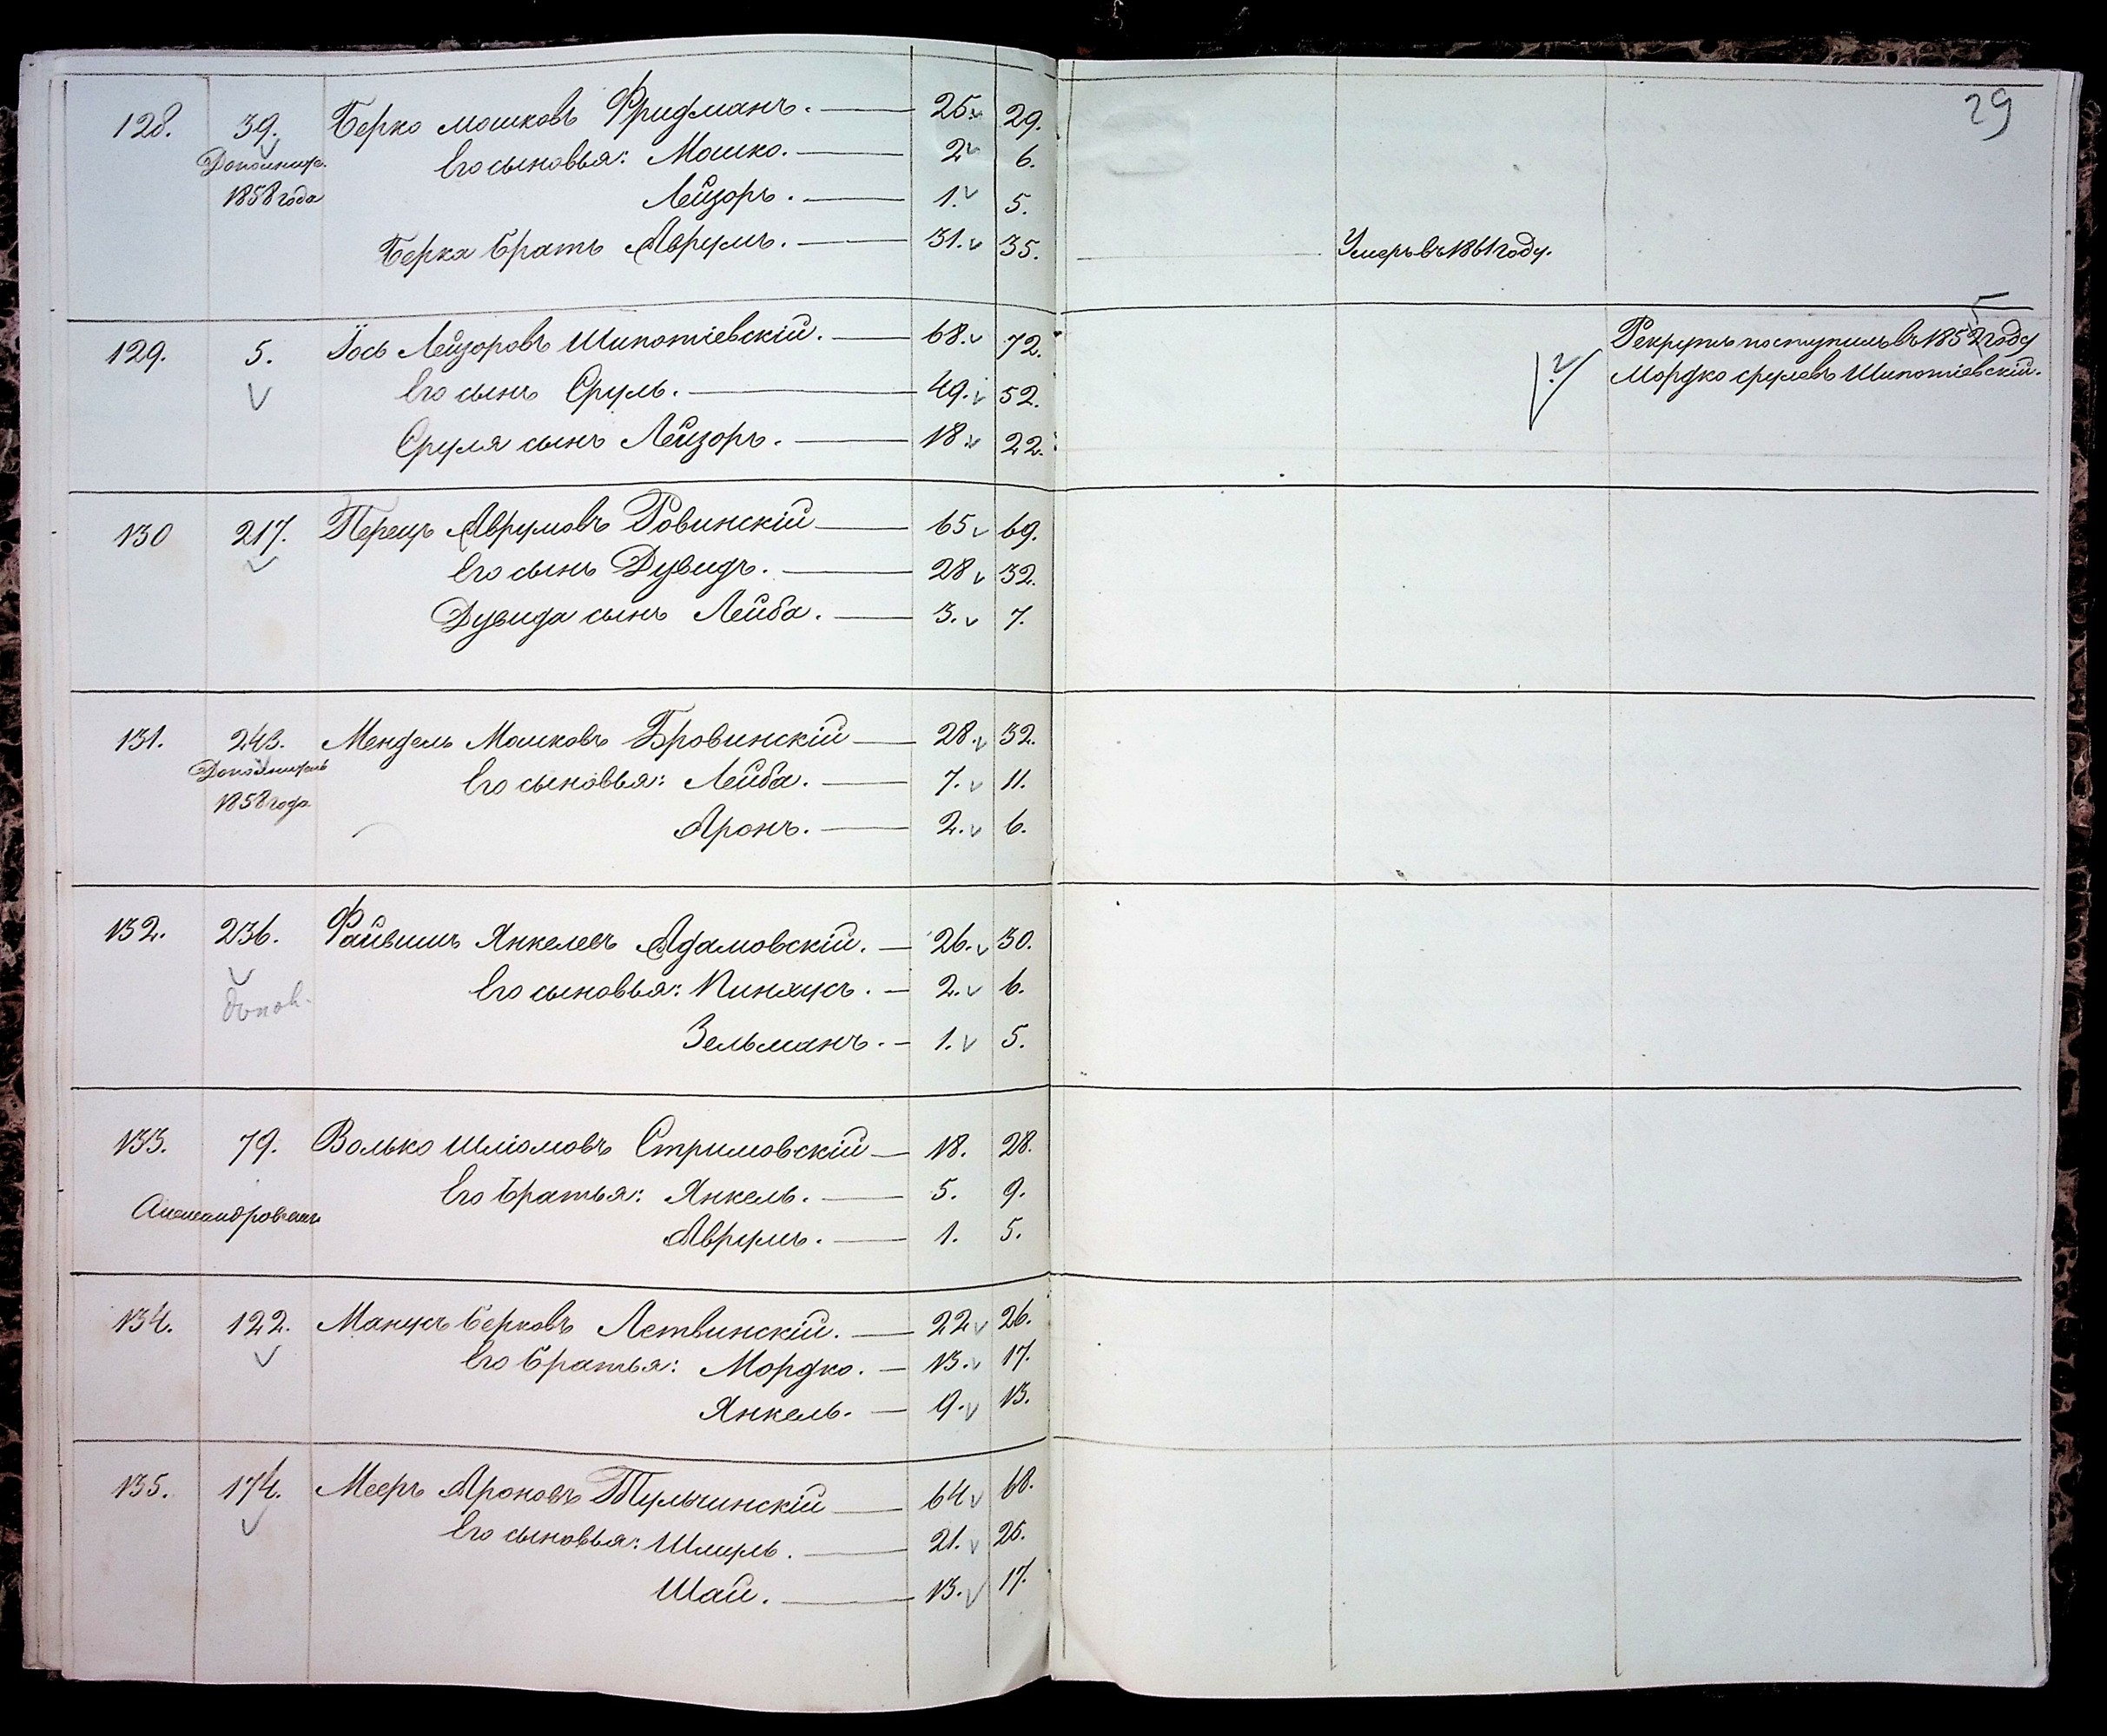 29
128. 39. Берко Мошковъ Фридманъ. 25. 29.
Дополнит. Его сыновья: Мошко. 2 6.
1858 года Лейзоръ. 1. 5.
Берка братъ Аврумъ. 31. 35. Умеръ въ 1861 году.
129. 5. Іось Лейзоровъ Шипотіевскій. 68. 72. Рекрутъ поступилъ въ 1852 году
Его сынъ Сруль. 49. 52. ? Мордко Срулевъ Шипотіевскій.
Сруля сынъ Лейзоръ. 18. 22.
130 217. Перецъ Аврумовъ Ровинскій 65 69.
Его сынъ Дувидъ. 28 32.
Дувида сынъ Лейба. 3. 7.
131. 243. Мендель Мошковъ Бровинскій 28. 32.
Дополнитель Его сыновья: Лейба. 7. 11.
1858 года Аронъ. 2. 6.
132. 236. Файвишъ Янкелевъ Адамовскій. 26. 30.
допол. Его сыновья: Пинхусъ. 2. 6.
Зельманъ. 1. 5.
133. 79. Волько Шліомовъ Стримовскій 18. 28.
Его братья: Янкель. 5. 9.
Аврумъ. 1. 5.
134. 122. Манусъ Берковъ Летвинскій. 22 26.
Его братья: Мордко. 13. 17.
Янкель. 9. 13.
135. 174. Мееръ Ароновъ Тульчинскій 64 68.
Его сыновья: Шмуль. 21. 25.
Шаи. 13. 17.